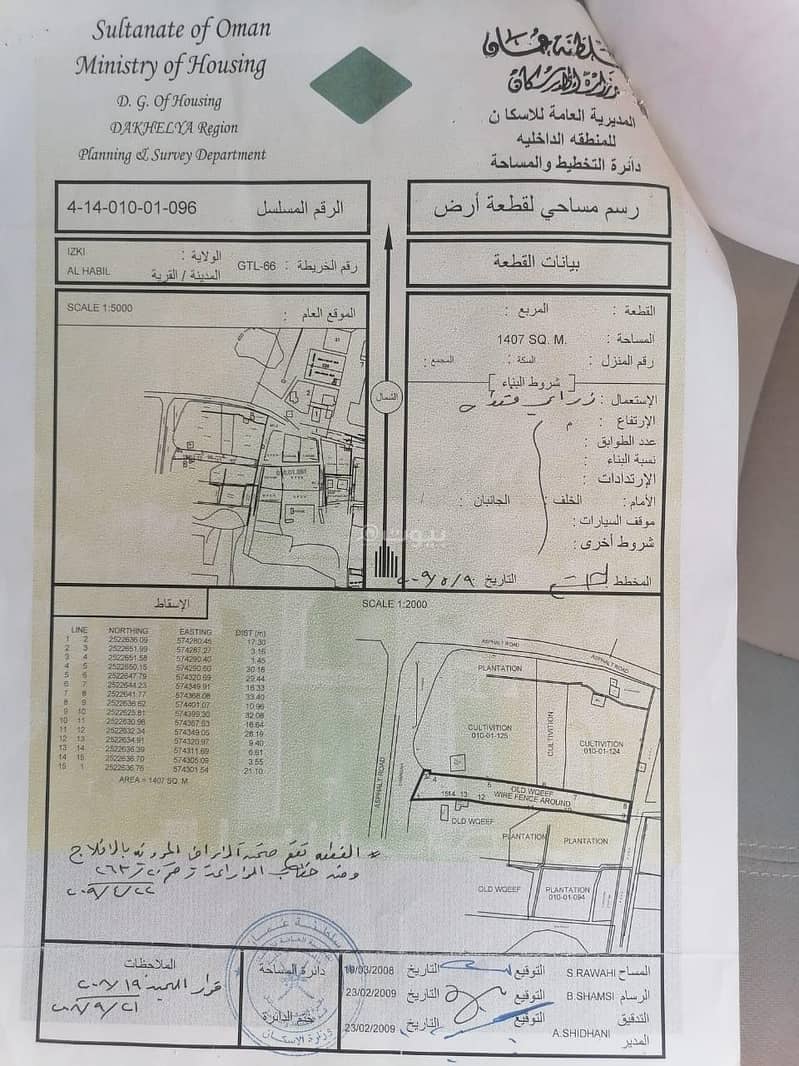 Sultanate of Oman
Ministry of Housing
D. G. Of Housing
DAKHELYA Region
Planning & Survey Department
سلطنة عمان
وزارة الإسكان
المديرية العامة للاسكان
للمنطقه الداخليه
دائرة التخطيط والمساحة
رسم مساحي لقطعة أرض
الرقم المسلسل 4-14-010-01-096
بيانات القطعة
الولاية : IZKI
المدينة / القرية AL HABIL
رقم الخريطة : GTL-66
القطعة : المربع :
المساحة : 1407 SQ. M.
رقم المنزل : السكة : المجمع :
شروط البناء
الإستعمال : زراعي فقط
الإرتفاع : م
عدد الطوابق :
نسبة البناء :
الإرتدادات :
الأمام : الخلف : الجانبان :
موقف السيارات :
شروط أخرى :
المخطط التاريخ
SCALE 1:5000
الموقع العام :
010.01.061
الشمال
بيوت
الإسقاط
SCALE 1:2000
LINE NORTHING EASTING DIST (m)
1 2 2522636.09 574280.45 17.30
2 3 2522651.99 574287.27 3.16
3 4 2522651.58 574290.40 1.45
4 5 2522650.15 574290.60 30.18
5 6 2522647.79 574320.69 29.44
6 7 2522644.23 574349.91 18.33
7 8 2522641.77 574368.08 33.40
8 9 2522636.62 574401.07 10.96
9 10 2522625.81 574399.30 32.08
10 11 2522630.96 574367.63 18.64
11 12 2522632.34 574349.05 28.19
12 13 2522634.91 574320.97 9.40
13 14 2522636.39 574311.69 6.61
14 15 2522636.70 574305.09 3.55
15 1 2522636.76 574301.54 21.10
AREA = 1407 SQ. M
ASPHALT ROAD
ASPHALT ROAD
PLANTATION
CULTIVITION
010-01-125
CULTIVITION
CULTIVITION
010-01-124
ASPHALT ROAD
OLD WQEEF
WIRE FENCE AROUND
OLD WQEEF
PLANTATION
PLANTATION
OLD WQEEF
PLANTATION
010-01-094
* القطعه تقع ضمن الأراضي المروية بالافلاج
٢٠٠٩/٤/٢٢
الملاحظات
٢٠٠٨/٩/٢١
دائرة المساحة
ختم الدائرة
سلطنة عمان
وزارة الإسكان
المساح S.RAWAHI التوقيع التاريخ 19/03/2008
الرسام B.SHAMSI التوقيع التاريخ 23/02/2009
التدقيق التوقيع
المدير A.SHIDHANI التاريخ 23/02/2009